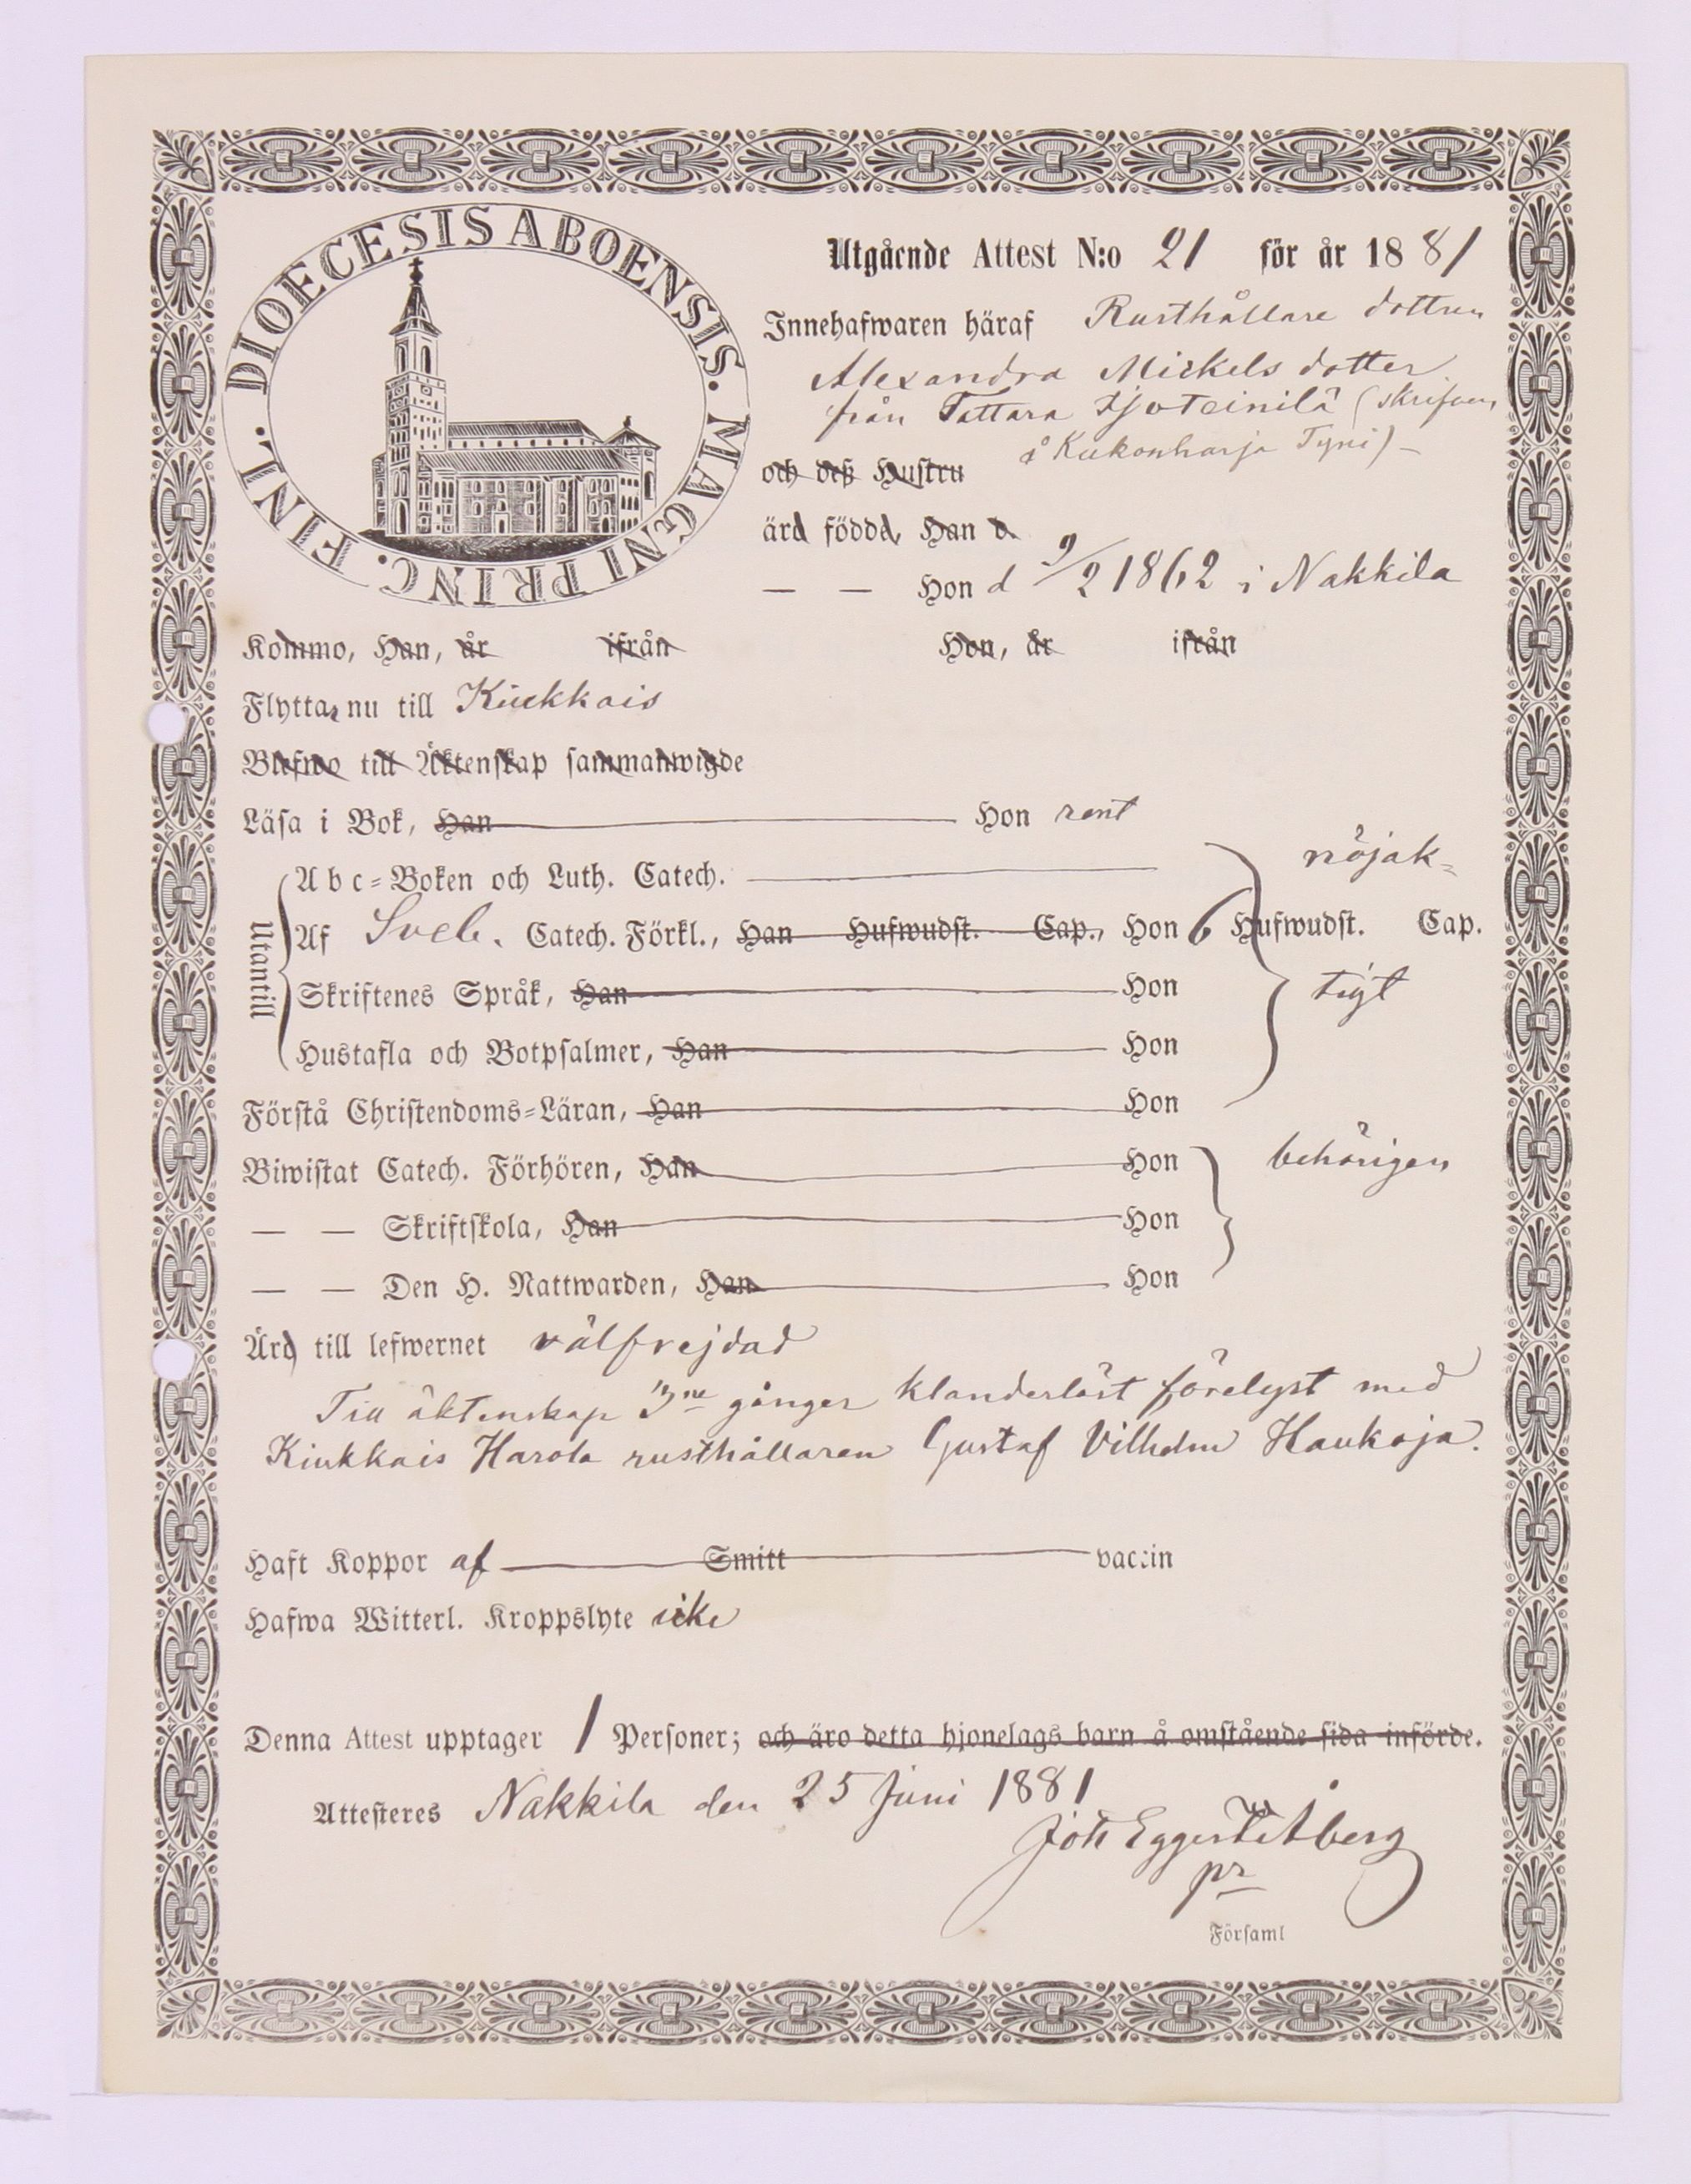 DIOECESIS ABOENSIS. MAGNI PRINC. FINL.
Utgående Attest N:o 21 för år 1881
Innehafwaren häraf Rusthållare dottren
Alexandra Mickels dotter
från Tattara (skrifven
å Kukonharja Tyni) –
och deß Hustru
ärd födde, Han d.
— — Hon d 9/2 1862 i Nakkila
Kommo, Han, år ifrån Hon, år ifrån
Flyttar nu till Kiukkais
Blefwo till Äktenskap sammanwigde
Läsa i Bok, Han Hon rent
Utantill
Abc-Boken och Luth. Catech. nöjak-
Af Sveb. Catech. Förkl., Han Hufwudst. Cap., Hon 6 Hufwudst. Cap.
Skriftenes Språk, Han Hon tigt
Hustafla och Botpsalmer, Han Hon
Förstå Christendoms-Läran, Han Hon
Biwistat Catech. Förhören, Han Hon behörigen
— — Skriftskola, Han Hon
— — Den H. Nattwarden, Han Hon
Ärd till lefwernet välfrejdad
Till äktenskap 3ne gånger klanderlöst förelyst med
Kiukkais Harola rusthållaren Gustaf Vilhelm Haukoja.
Haft Koppor af Smitt vaccin
Hafwa Witterl. Kroppslyte icke
Denna Attest upptager 1 Personer; och äro detta hjonelags barn å omstående sida införde.
Attesteres Nakkila den 25 Juni 1881
Joh Eggert Åberg
pr
Församl